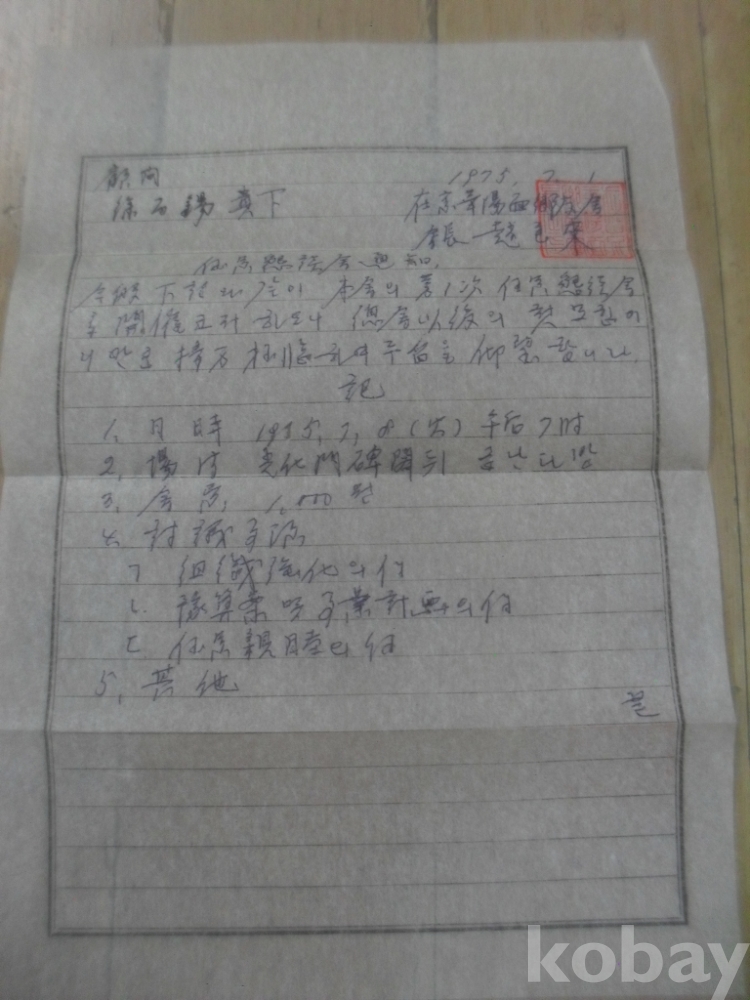 顧問
徐石錫 貴下
1975. 7. 1
在京 面鄕友會
會長 趙
任員懇談會通知
今般 下記와 같이 本會의 第1次 任員懇談會
를 開催코저 하오니 總會以後의 첫 모힘이
니 만큼 接万 枉臨하여 주심을 仰望합니다.
記
1. 日時 1975. 7. 8 (火) 午后 7時
2. 場所 光化門碑閣뒤 다방
3. 會費 1,000원
4. 討議事項
ㄱ 組織強化의 件
ㄴ. 豫算案 및 事業計劃의 件
ㄷ 任員親睦의 件
5. 其他
끝
kobay